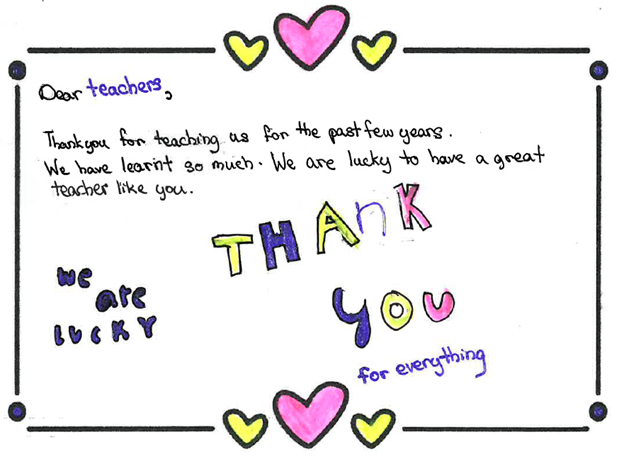 Dear teachers,
Thank you for teaching us for the past few years.
We have learnt so much. We are lucky to have a great
teacher like you.
THAnK
you
for everything
we
are
LUCKY